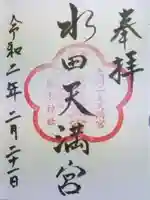 奉拝
水田天満宮
令和二年二月二十一日